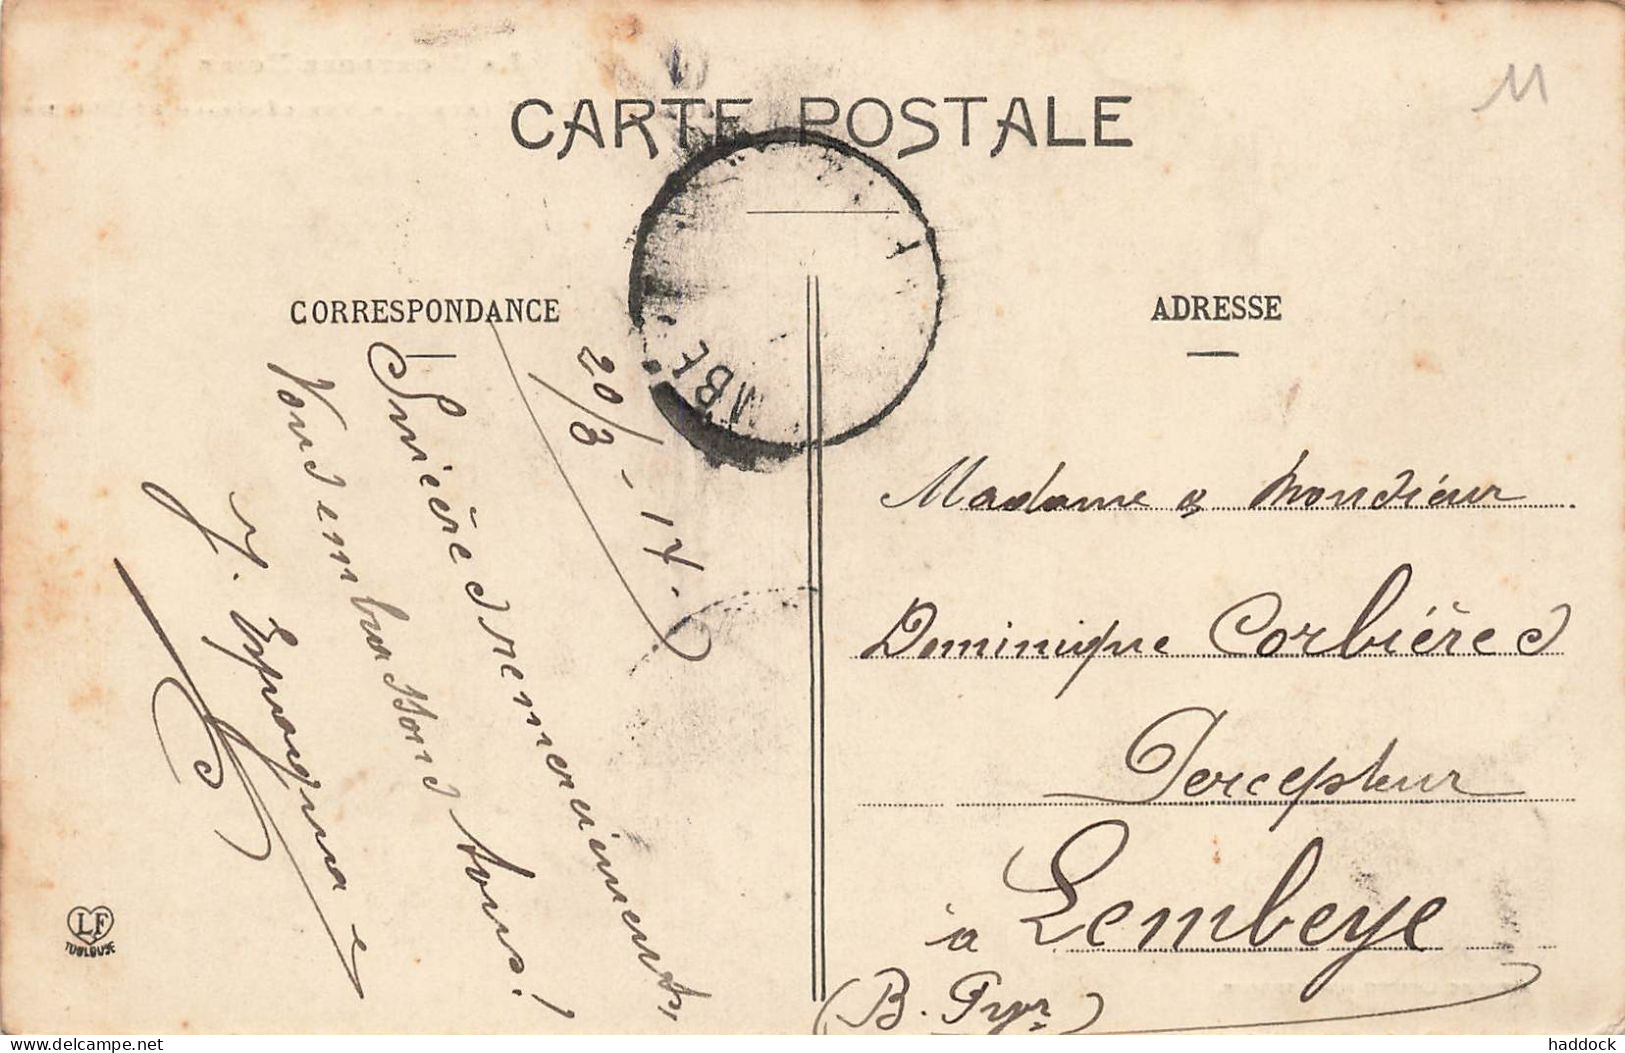 11
CARTE POSTALE
MBE
CORRESPONDANCE
ADRESSE
20/3-17.
Sincères remerciements,
Vous embrassons tous!
J. Espagnac
Madame & Monsieur
Dominique Corbières
Percepteur
à Lembeye
(B. Pyr.)
LF
TOULOUSE
delcampe.net
haddock